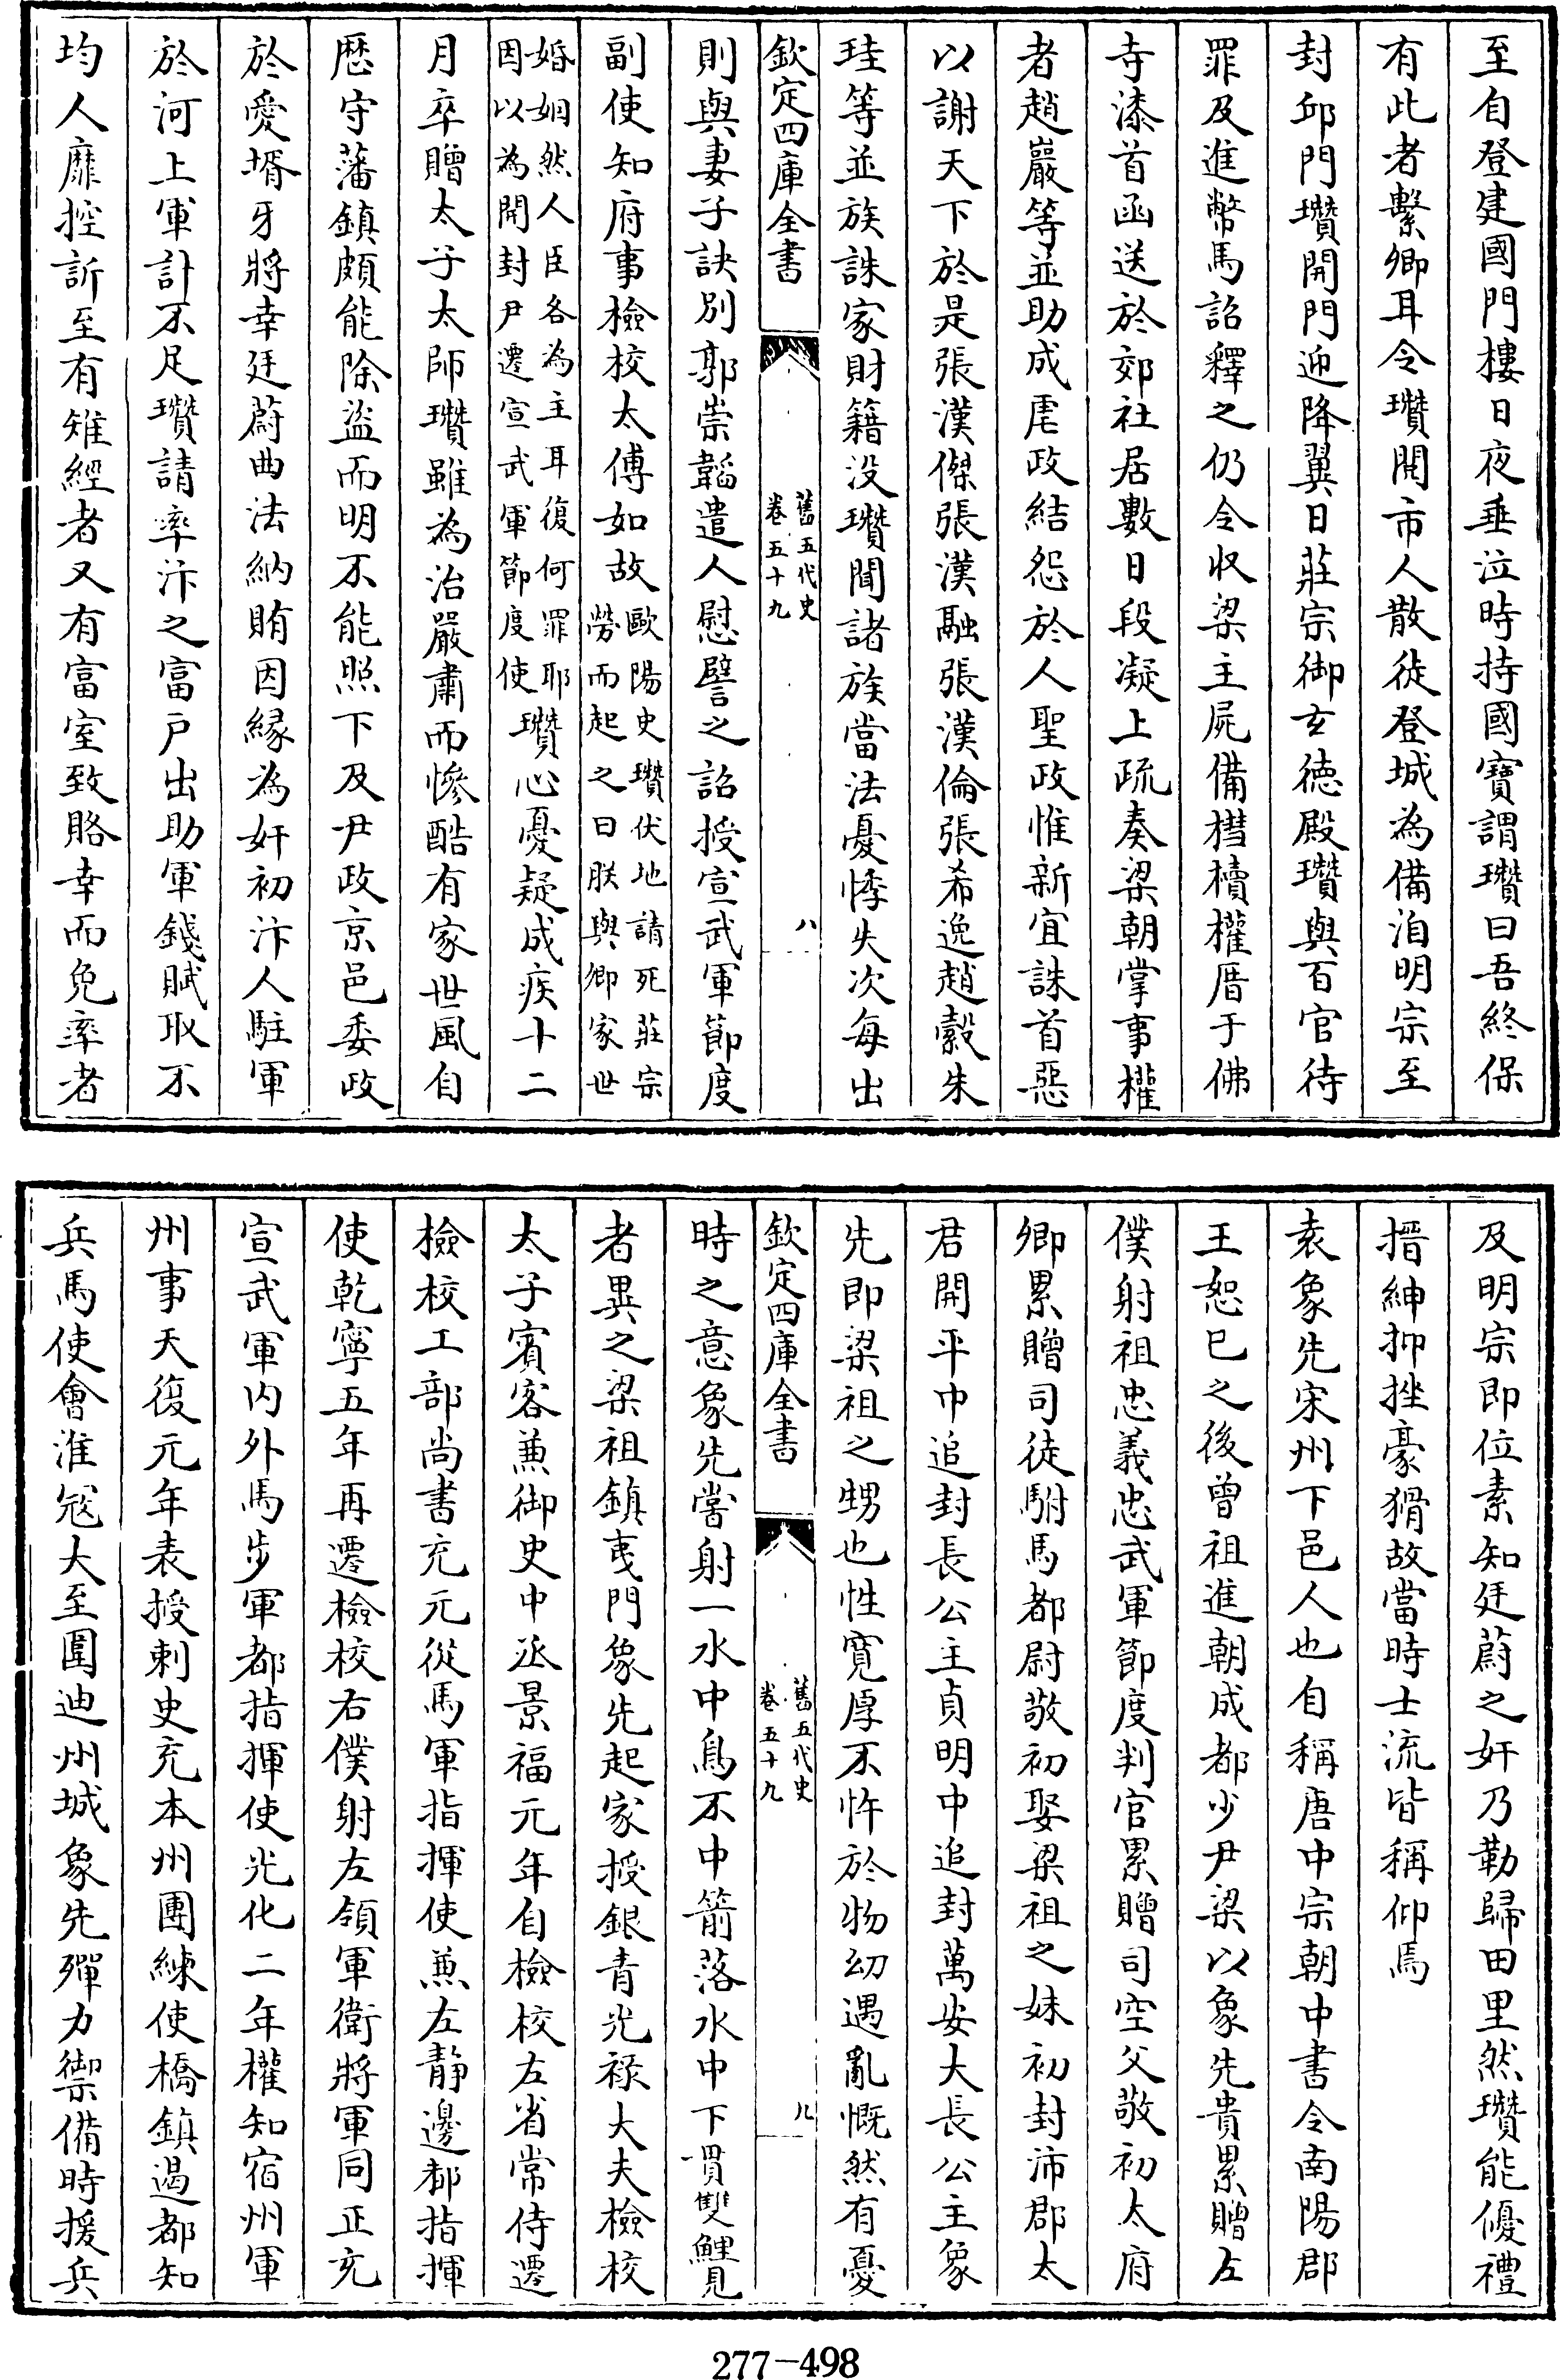 至自登建國門樓日夜垂泣時持國寶謂瓚曰吾終保
有此者繫卿耳令瓚閱市人散徒登城為備洎明宗至
封邱門瓚開門迎降翼日莊宗御𤣥德殿瓚與百官待
罪及進幣馬詔釋之仍令收梁主屍備槥櫝權厝于佛
寺漆首函送於郊社居數日段凝上疏奏梁朝掌事權
者趙巖等並助成虐政結怨於人聖政惟新宜誅首惡
以謝天下於是張漢傑張漢融張漢倫張希逸趙縠朱
珪等並族誅家財籍没瓚聞諸族當法憂悸失次每出
欽定四庫全書
舊五代史
卷五十九
八
則與妻子訣別郭崇韜遣人慰譬之詔授宣武軍節度
副使知府事檢校太傅如故歐陽史瓚伏地請死莊宗
勞而起之曰朕與卿家世
婚姻然人臣各為主耳復何罪耶
因以為開封尹遷宣武軍節度使瓚心憂疑成疾十二
月卒贈太子太師瓚雖為治嚴肅而慘酷有家世風自
歴守藩鎮頗能除盜而明不能照下及尹政京邑委政
於愛壻牙將辛廷蔚曲法納賄因緣為奸初汴人駐軍
於河上軍計不足瓚請率汴之富戶出助軍錢賦取不
均人靡控訴至有雉經者又有富室致賂幸而免率者
及明宗即位素知廷蔚之奸乃勒歸田里然瓚能優禮
搢紳抑挫豪猾故當時士流皆稱仰焉
袁象先宋州下邑人也自稱唐中宗朝中書令南陽郡
王恕已之後曾祖進朝成都少尹梁以象先貴累贈左
僕射祖忠義忠武軍節度判官累贈司空父敬初太府
卿累贈司徒駙馬都尉敬初娶梁祖之妹初封沛郡太
君開平中追封長公主貞明中追封萬安大長公主象
先即梁祖之甥也性寛厚不忤於物幼遇亂慨然有憂
欽定四庫全書
舊五代史
卷五十九
九
時之意象先嘗射一水中鳥不中箭落水中下貫雙鯉見
者異之梁祖鎮夷門象先起家授銀青光禄大夫檢校
太子賓客兼御史中丞景福元年自檢校左省常侍遷
檢校工部尚書充元從馬軍指揮使兼左靜邊都指揮
使乾寧五年再遷檢校右僕射左領軍衛將軍同正充
宣武軍内外馬步軍都指揮使光化二年權知宿州軍
州事天復元年表授刺史充本州團練使橋鎮遏都知
兵馬使會淮冦大至圍迪州城象先殫力禦備時援兵
277-498